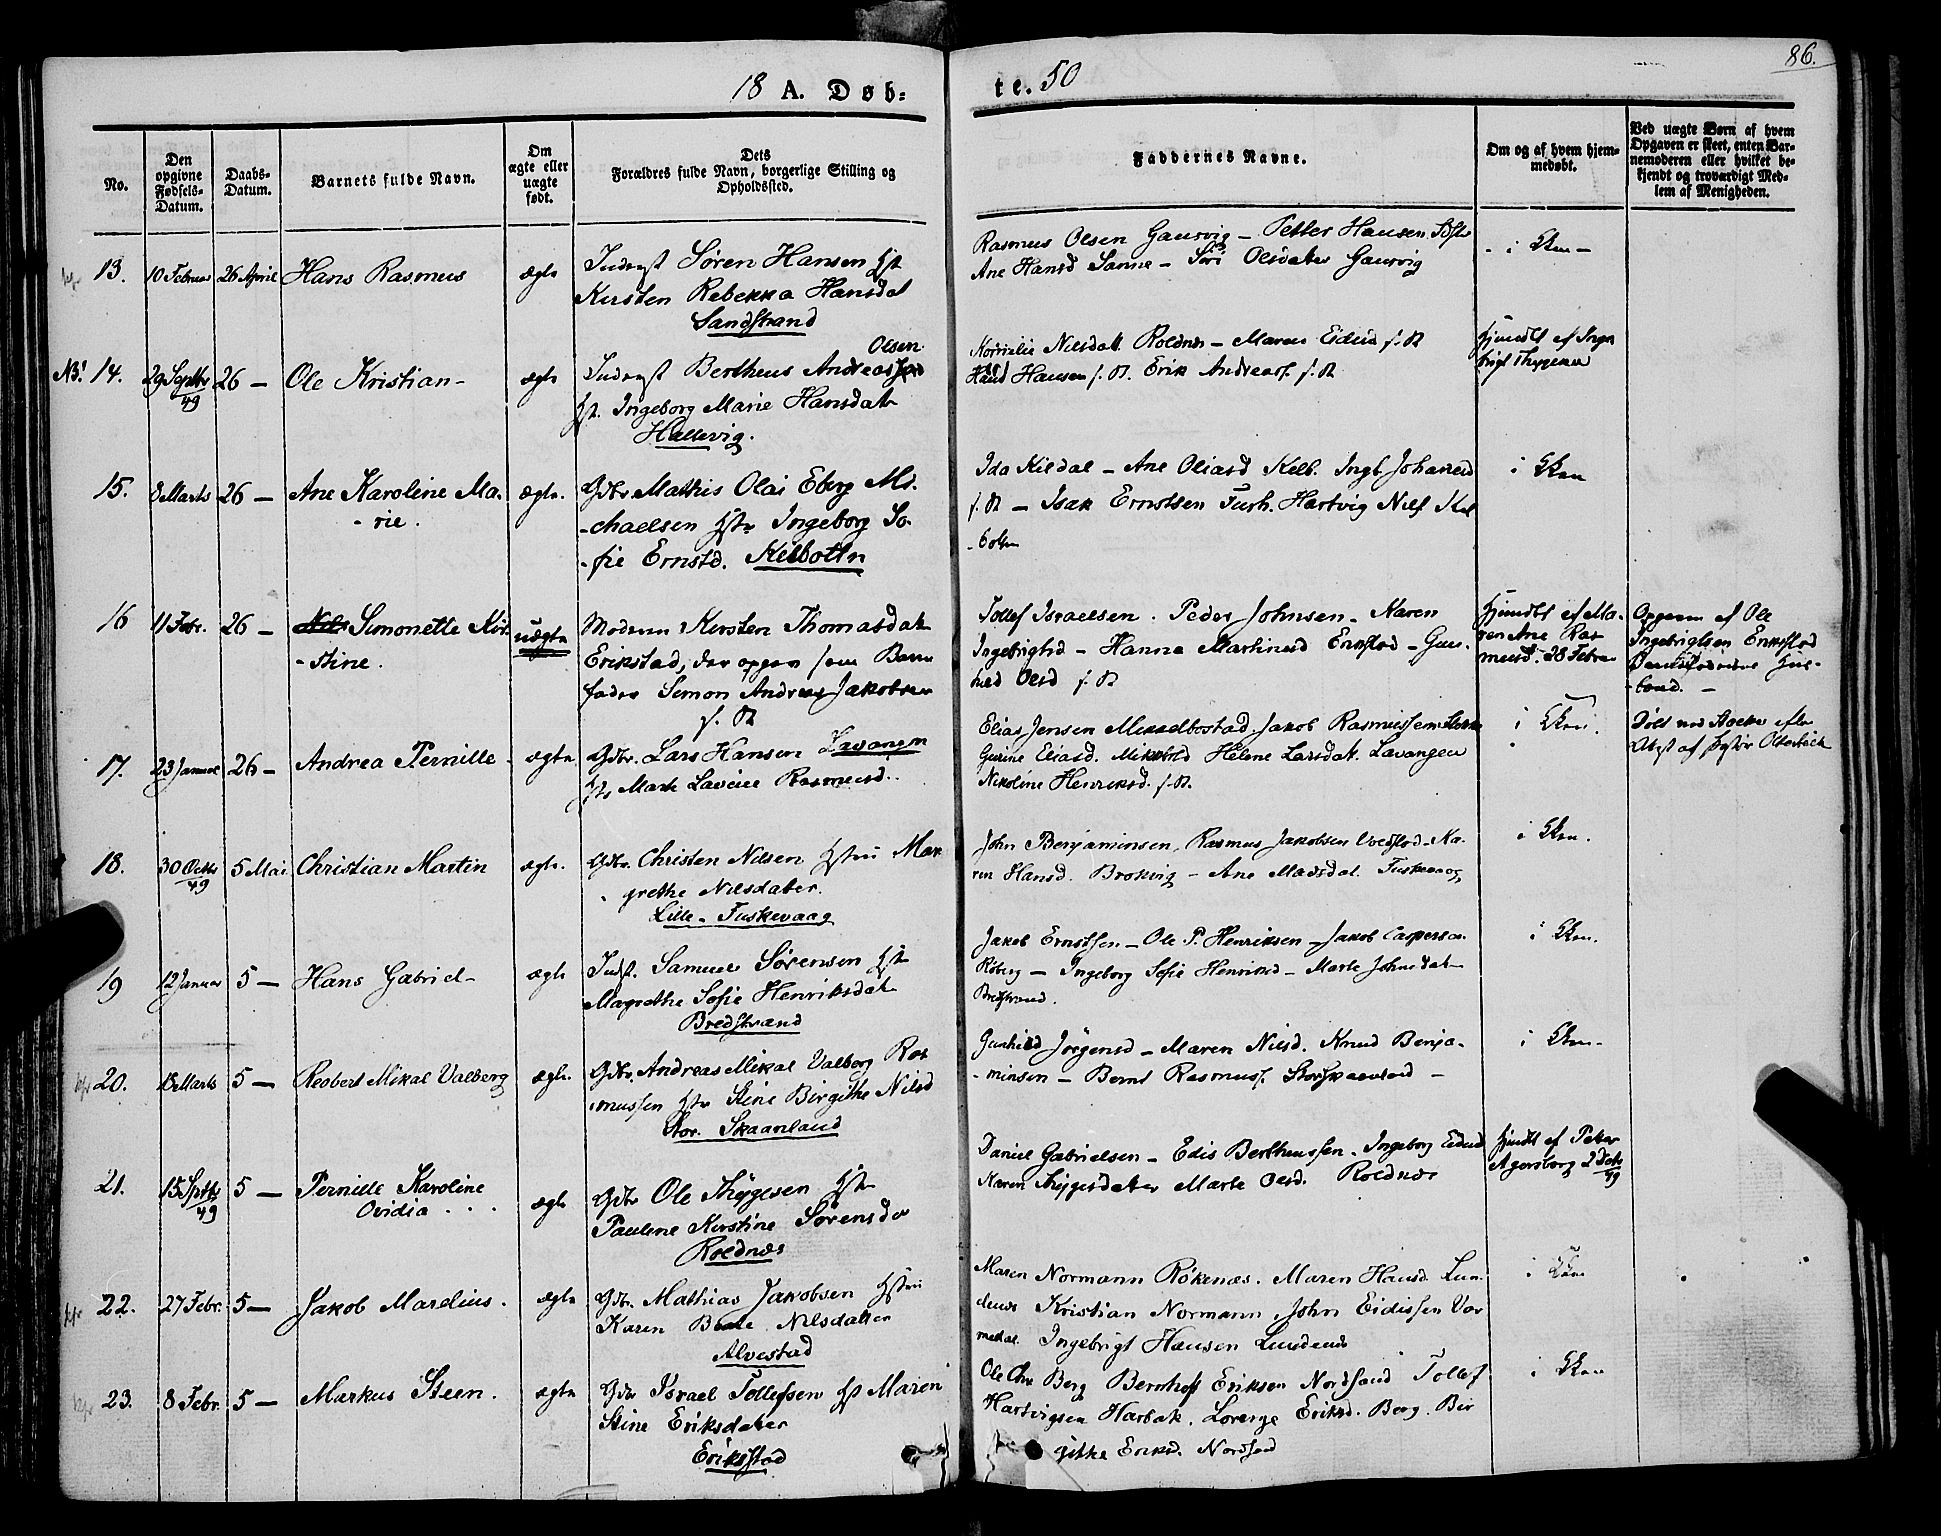 86.
18 A. Døb:
te. 50
No.
Den
opgivne
Fødsels-
Datum.
Daabs-
Datum.
Barnets fulde Navn.
Om
ægte eller
uægte
født.
Dets
Forældres fulde Navn, borgerlige Stilling og
Opholdssted.
Faddernes Navne.
Om og af hvem hjem-
medøbt.
Ved uægte Børn af hvem
Opgaven er skeet, enten Bar-
nemoderen eller hvilket be-
kjendt og troværdigt Med-
lem af Menigheden.
13. 10 Februar 26 April Hans Rasmus ægte
Søren Hansen
Kirsten Rebekka Hansdat
Sandstrand
Rasmus Olsen Gausvig – Petter Hansen
Ane Hansd Sanne – Olsdater Gausvig
i Kken –
14. 29 Septbr 49 26 – Ole Kristian – ægte
Olsen
Bertheus Andreas
Ingeborg Marie Hansdatr
Hallevig.
Nilsdatt. Roldnes – Maren Eidisd s. St
Hansen s. St. Erik Andreass. s. St
15. 8 Marts 26 – Ane Karoline Ma-
- rie. ægte.
Gdbr Mathis Olai Eberg Mi-
- chaelsen Hstr Ingeborg So-
- fie Ernstd. Kilbotn
Ida Kildal – Ane Oliasd Kelb. Ingb. Johannesd
s. St – Isak Ernstsen Fush. Hartvig Nils Kil-
- botn
i Kken
16 11 Febr. 26 – Simonette Kir-
- stine. uægte
Moderen Kirsten Thomasdatr
Erikstad, der opgav som Barne-
fader Simon Andreas Jakobsen
s. St
Tollef Israelsen. Peder Johnsen – Karen
Ingebrigtsd – Hanna Martinusd Erikstad – Gun-
hild Olsd s. St
Hjemdbt af Ma-
ren Ane Ras-
musd. 28 Febr
Opgaven af Ole
Ingebrigtsen Erikstad
17. 23 Januar 26 – Andrea Pernille ægte
Gdbr. Lars Hansen Lavangen
Rasmusd.
Elias Jensen Mikkelbostad Jakob Rasmussen
Eliasd. Helene Larsdat. Lavangen
Nikoline Henriksd. s. St.
i Kken.
18. 30 Octbr 49 5 Mai Christian Martin ægte.
Gdbr. Christen Nilsen Hstru Mar-
grethe Nilsdatter.
Lille-Fuskevaag
John Benjaminsen, Rasmus Jakobsen – Ka-
ren Hansd. Brokvig – Ane Madsdat. Fuskevaag
i Kken.
19 12 Januar 5 – Hans Gabriel – ægte
Indst. Samuel Sørensen Hstr
Magrethe Sofie Henriksdatr
Bredstrand
Jakob Ernstsen – Ole P. Henriksen – Jakob Caspersen
Røberg – Ingeborg Sofie Henriksd – Marte Johnsdatr
Bredstrand.
i Kken.
20. 18 Marts 5 – Reobert Mikal Valberg ægte.
Gdbr. Andreas Mikal Valborg Ras-
mussen Hstr Stine Birgithe Nilsd
Stor. Skaanland
Gunhild Jörgensd – Maren Nilsd. Knud Benja-
- minsen – Bernt Rasmuss. Storskaanland –
i Kken –
21. 15 Septbr 49 5 – Pernille Karoline
Ovidia ægte
Gdbr Ole Thygesen Hstr
Paulene Kirstine Sørensdr
Roldnes
Daniel Gabrielsen – Edis Bertheussen – Ingeborg Eidisd
Karen Thygesdater Marte Olsd. Roldnes
Hjemdbt af Peter
Agersborg 2 Octb 49
22. 27 Febr. 5 – Jakob Mardius. ægte
Gdbr. Mathias Jakobsen Hstru
Karen Beate Nilsdatter
Alvestad
Maren Normann Rökenæs. Maren Hansd. Lun-
denes Kristian Normann John Eidissen Vor-
medal. Ingebrigt Hansen Lundenes
i Kken
23. 8 Febr. 5 – Markus Steen. ægte
Gdbr Israel Tollefsen Hst Maren
Stine Eriksdater
Eriksstad
Ole Chr Berg Bernhoft Eriksen Nordsand Tollef
Hartvigsen Harbak. Lorenze Eriksd. Berg. Bir-
githe Eriksd. Nordsand
i Kken